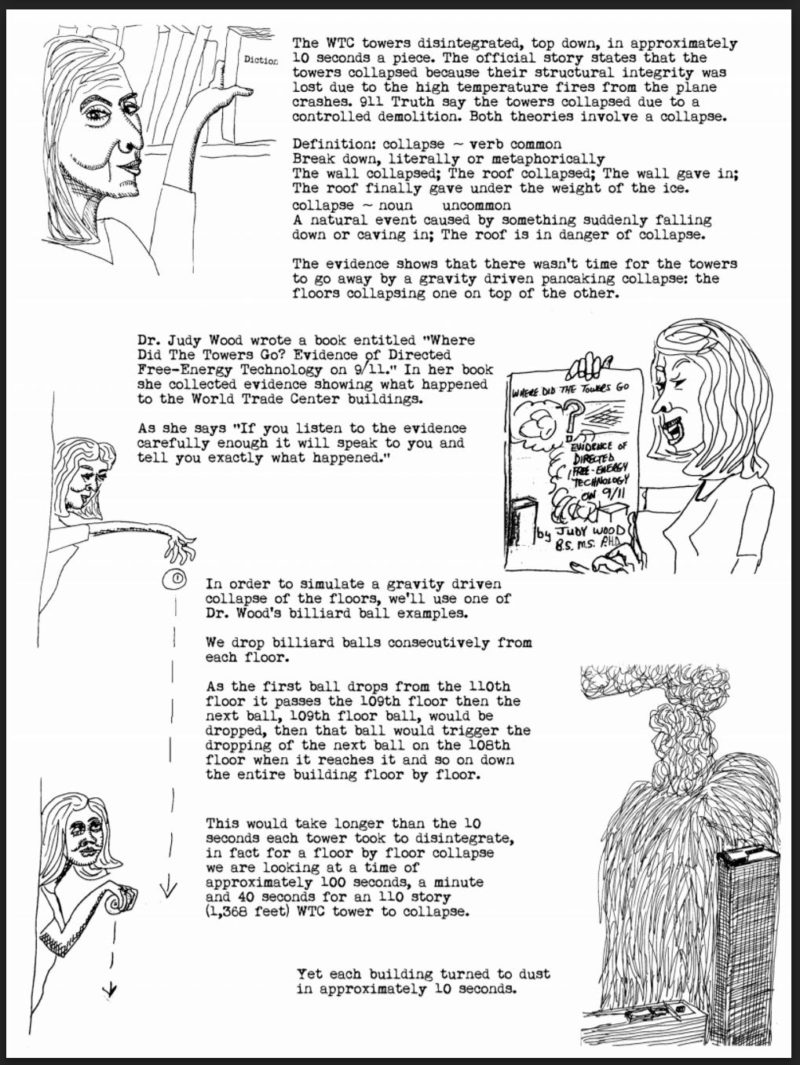 Diction
The WTC towers disintegrated, top down, in approximately
10 seconds a piece. The official story states that the
towers collapsed because their structural integrity was
lost due to the high temperature fires from the plane
crashes. 911 Truth say the towers collapsed due to a
controlled demolition. Both theories involve a collapse.
Definition: collapse ~ verb common
Break down, literally or metaphorically
The wall collapsed; The roof collapsed; The wall gave in;
The roof finally gave under the weight of the ice.
collapse ~ noun uncommon
A natural event caused by something suddenly falling
down or caving in; The roof is in danger of collapse.
The evidence shows that there wasn't time for the towers
to go away by a gravity driven pancaking collapse: the
floors collapsing one on top of the other.
Dr. Judy Wood wrote a book entitled "Where
Did The Towers Go? Evidence of Directed
Free-Energy Technology on 9/11." In her book
she collected evidence showing what happened
to the World Trade Center buildings.
As she says "If you listen to the evidence
carefully enough it will speak to you and
tell you exactly what happened."
WHERE DID THE TOWERS GO
?
EVIDENCE OF
DIRECTED
FREE-ENERGY
TECHNOLOGY
ON 9/11
by JUDY WOOD
B.S. M.S. P.H.D.
In order to simulate a gravity driven
collapse of the floors, we'll use one of
Dr. Wood's billiard ball examples.
We drop billiard balls consecutively from
each floor.
As the first ball drops from the 110th
floor it passes the 109th floor then the
next ball, 109th floor ball, would be
dropped, then that ball would trigger the
dropping of the next ball on the 108th
floor when it reaches it and so on down
the entire building floor by floor.
This would take longer than the 10
seconds each tower took to disintegrate,
in fact for a floor by floor collapse
we are looking at a time of
approximately 100 seconds, a minute
and 40 seconds for an 110 story
(1,368 feet) WTC tower to collapse.
Yet each building turned to dust
in approximately 10 seconds.